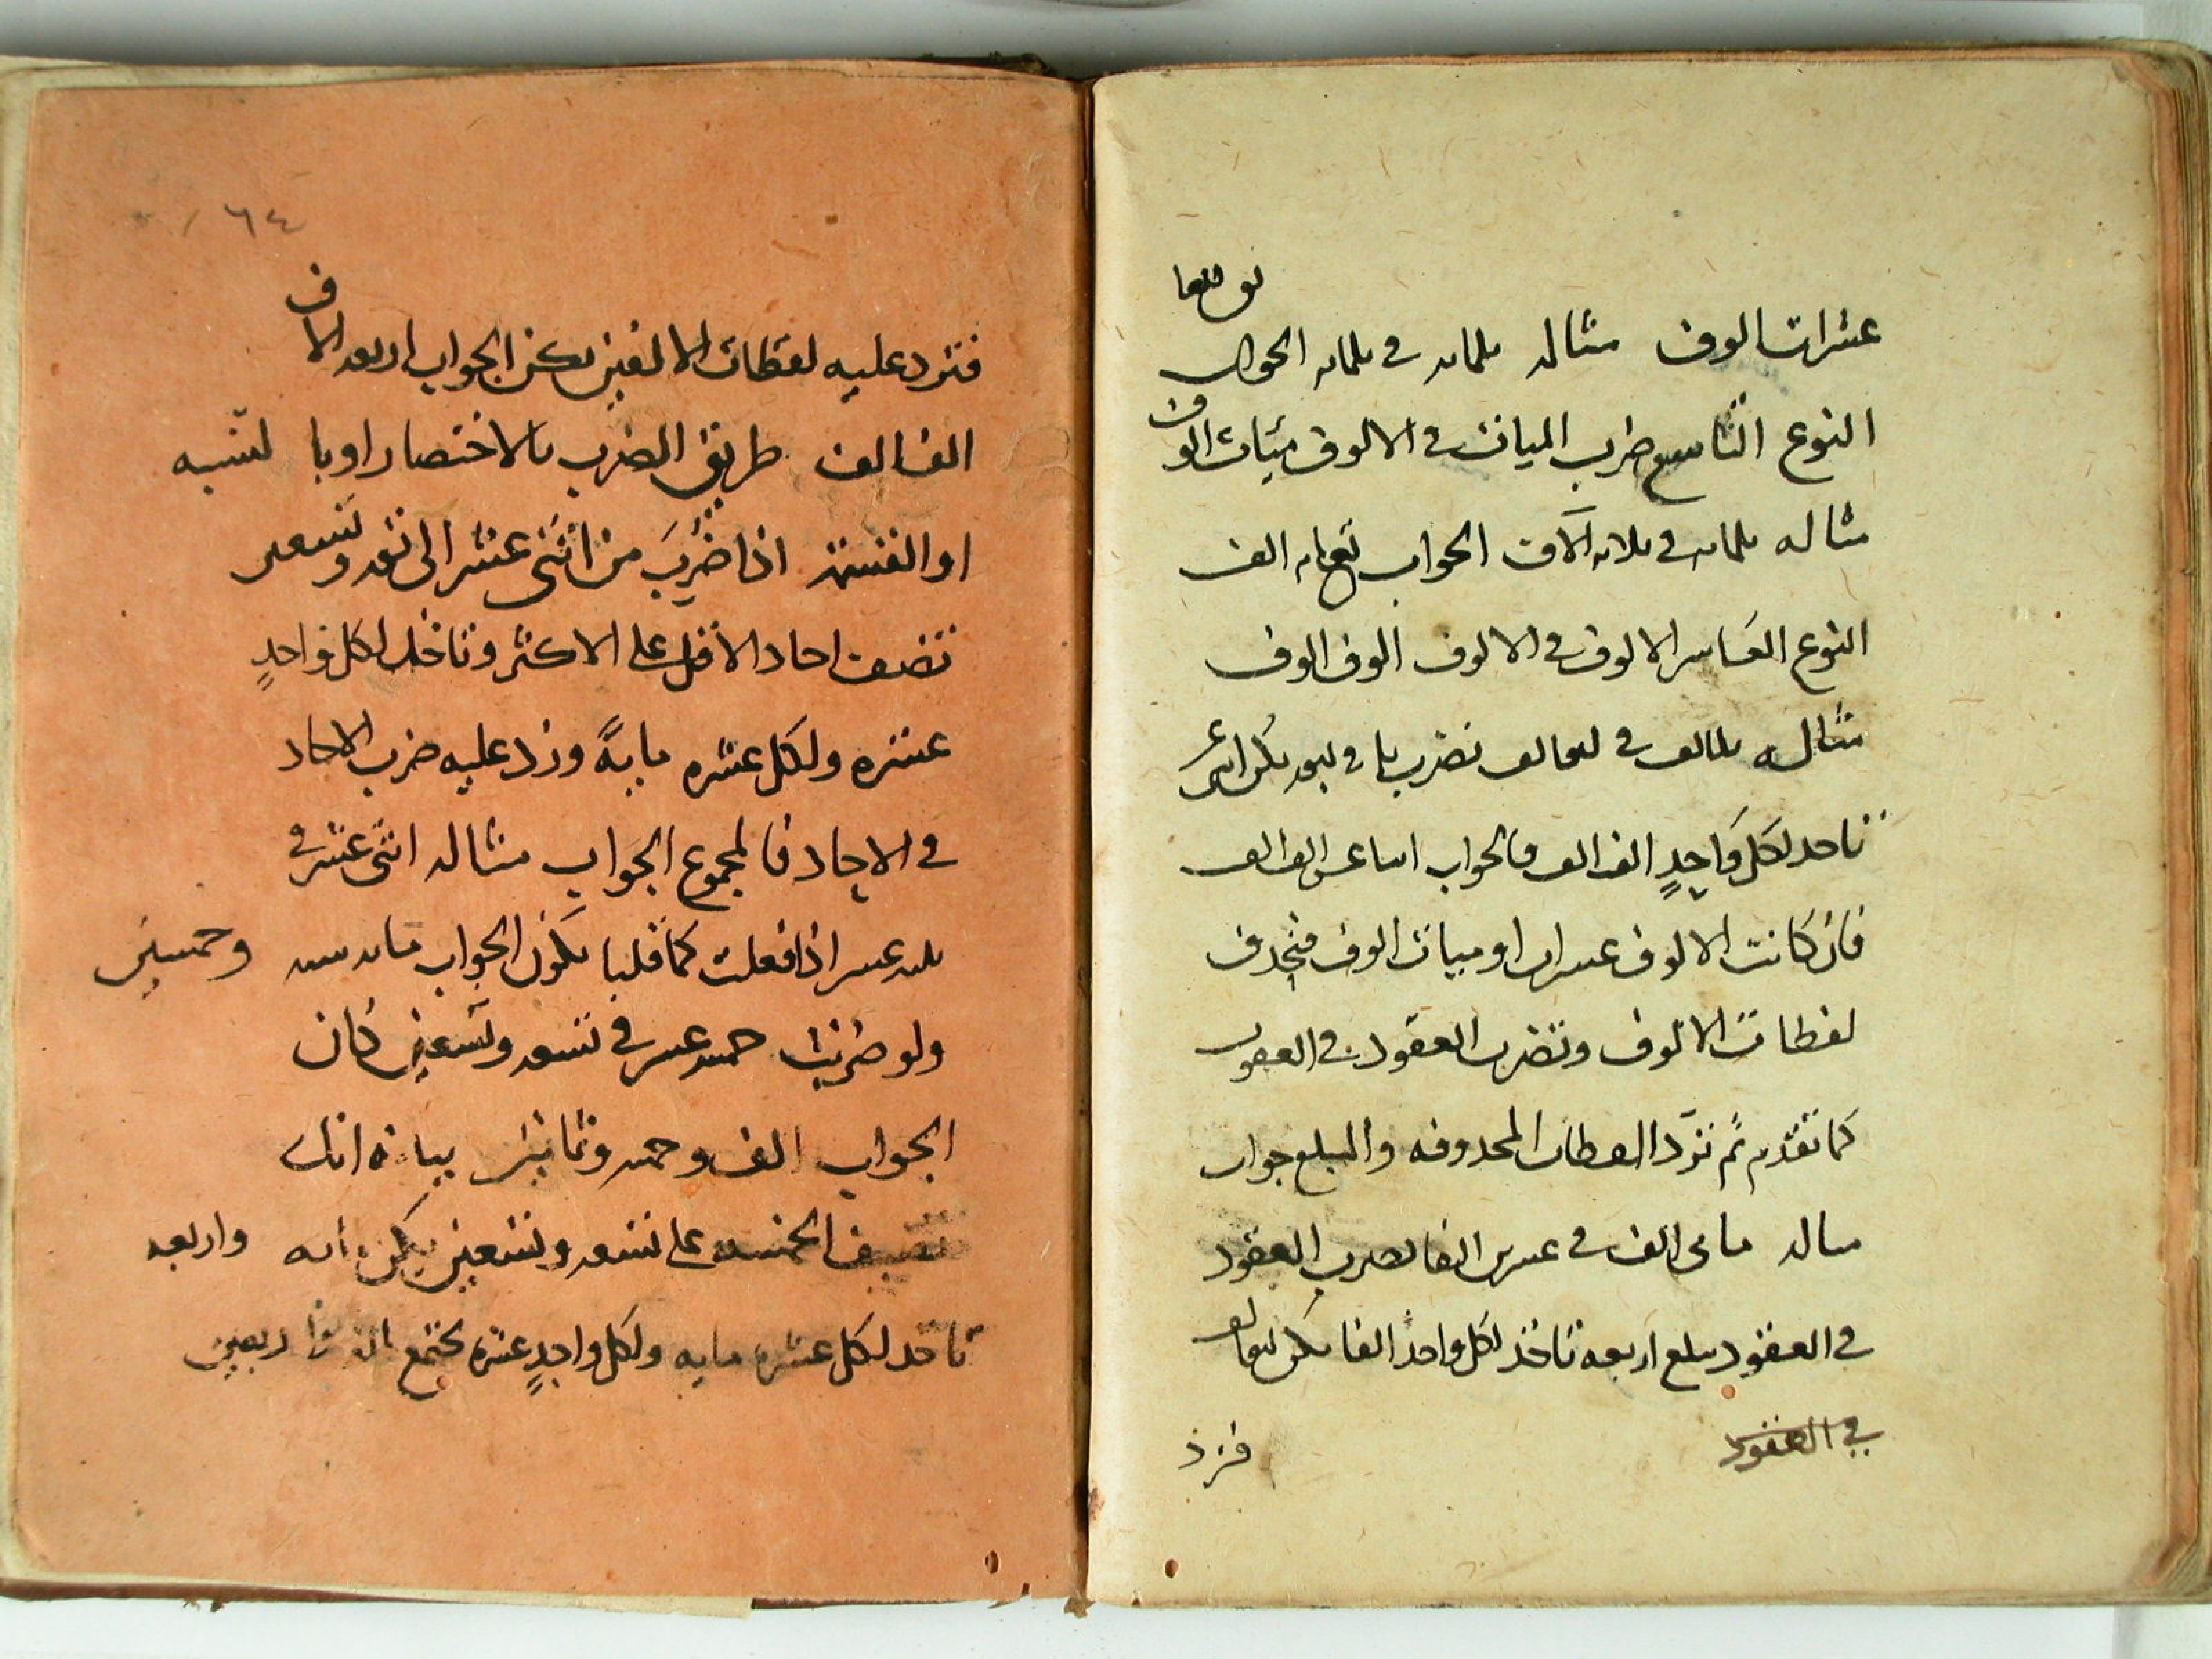 عشرات الوف مثاله ثلثمائه في ثلثمائه الجواب تسعون الفا
النوع التاسع ضرب الميات في الالوف مئيات الوف
مثاله ثلثمائه في ثلاثه آلاف الجواب تسعمائه الف
النوع العاشر الالوف في الالوف الوف الوف
مثاله في تضرب في يكن اثنى عشر
تاخذ لكل واحدٍ الف الف فالجواب اثنا عشر الف الف
فان كانت الالوف عشرات او ميات الوف فتحذف
لفظات الالوف وتضرب العقود في العقود
كما تقدم ثم تزد اللفظات المحذوفه والمبلغ جواب
مثاله مائتى الف في عشرين الفا تضرب العقود
في العقود يبلغ اربعه تاخذ لكل واحد الفا يكن
في العقود
فتزد
٦٤
فتزد عليه لفظات الالفين يكن الجواب اربعه الاف
الف الف طريق الضرب بالاختصار او با لنسبه
او القسمة اذا ضُرِبَ من اثنى عشر الى تسعه وتسعين
تضف احاد الاقل على الاكثر وتاخذ لكل واحدٍ
عشره ولكل عشره مايةً وزد عليه ضرب الاحاد
في الاحاد فالمجموع الجواب مثاله اثنى عشر في
ثلثه عشر اذا فعلت كما قلنا يكون الجواب مائه سته وخمسين
ولو ضربت خمسه عشر في تسعه وتسعين كان
الجواب الف وخمسه وثمانين بيانه انك
تضيف الخمسه على تسعه وتسعين يكن مائه واربعه
تاخذ لكل عشره مايه ولكل واحدٍ عشره يجتمع الف واربعين